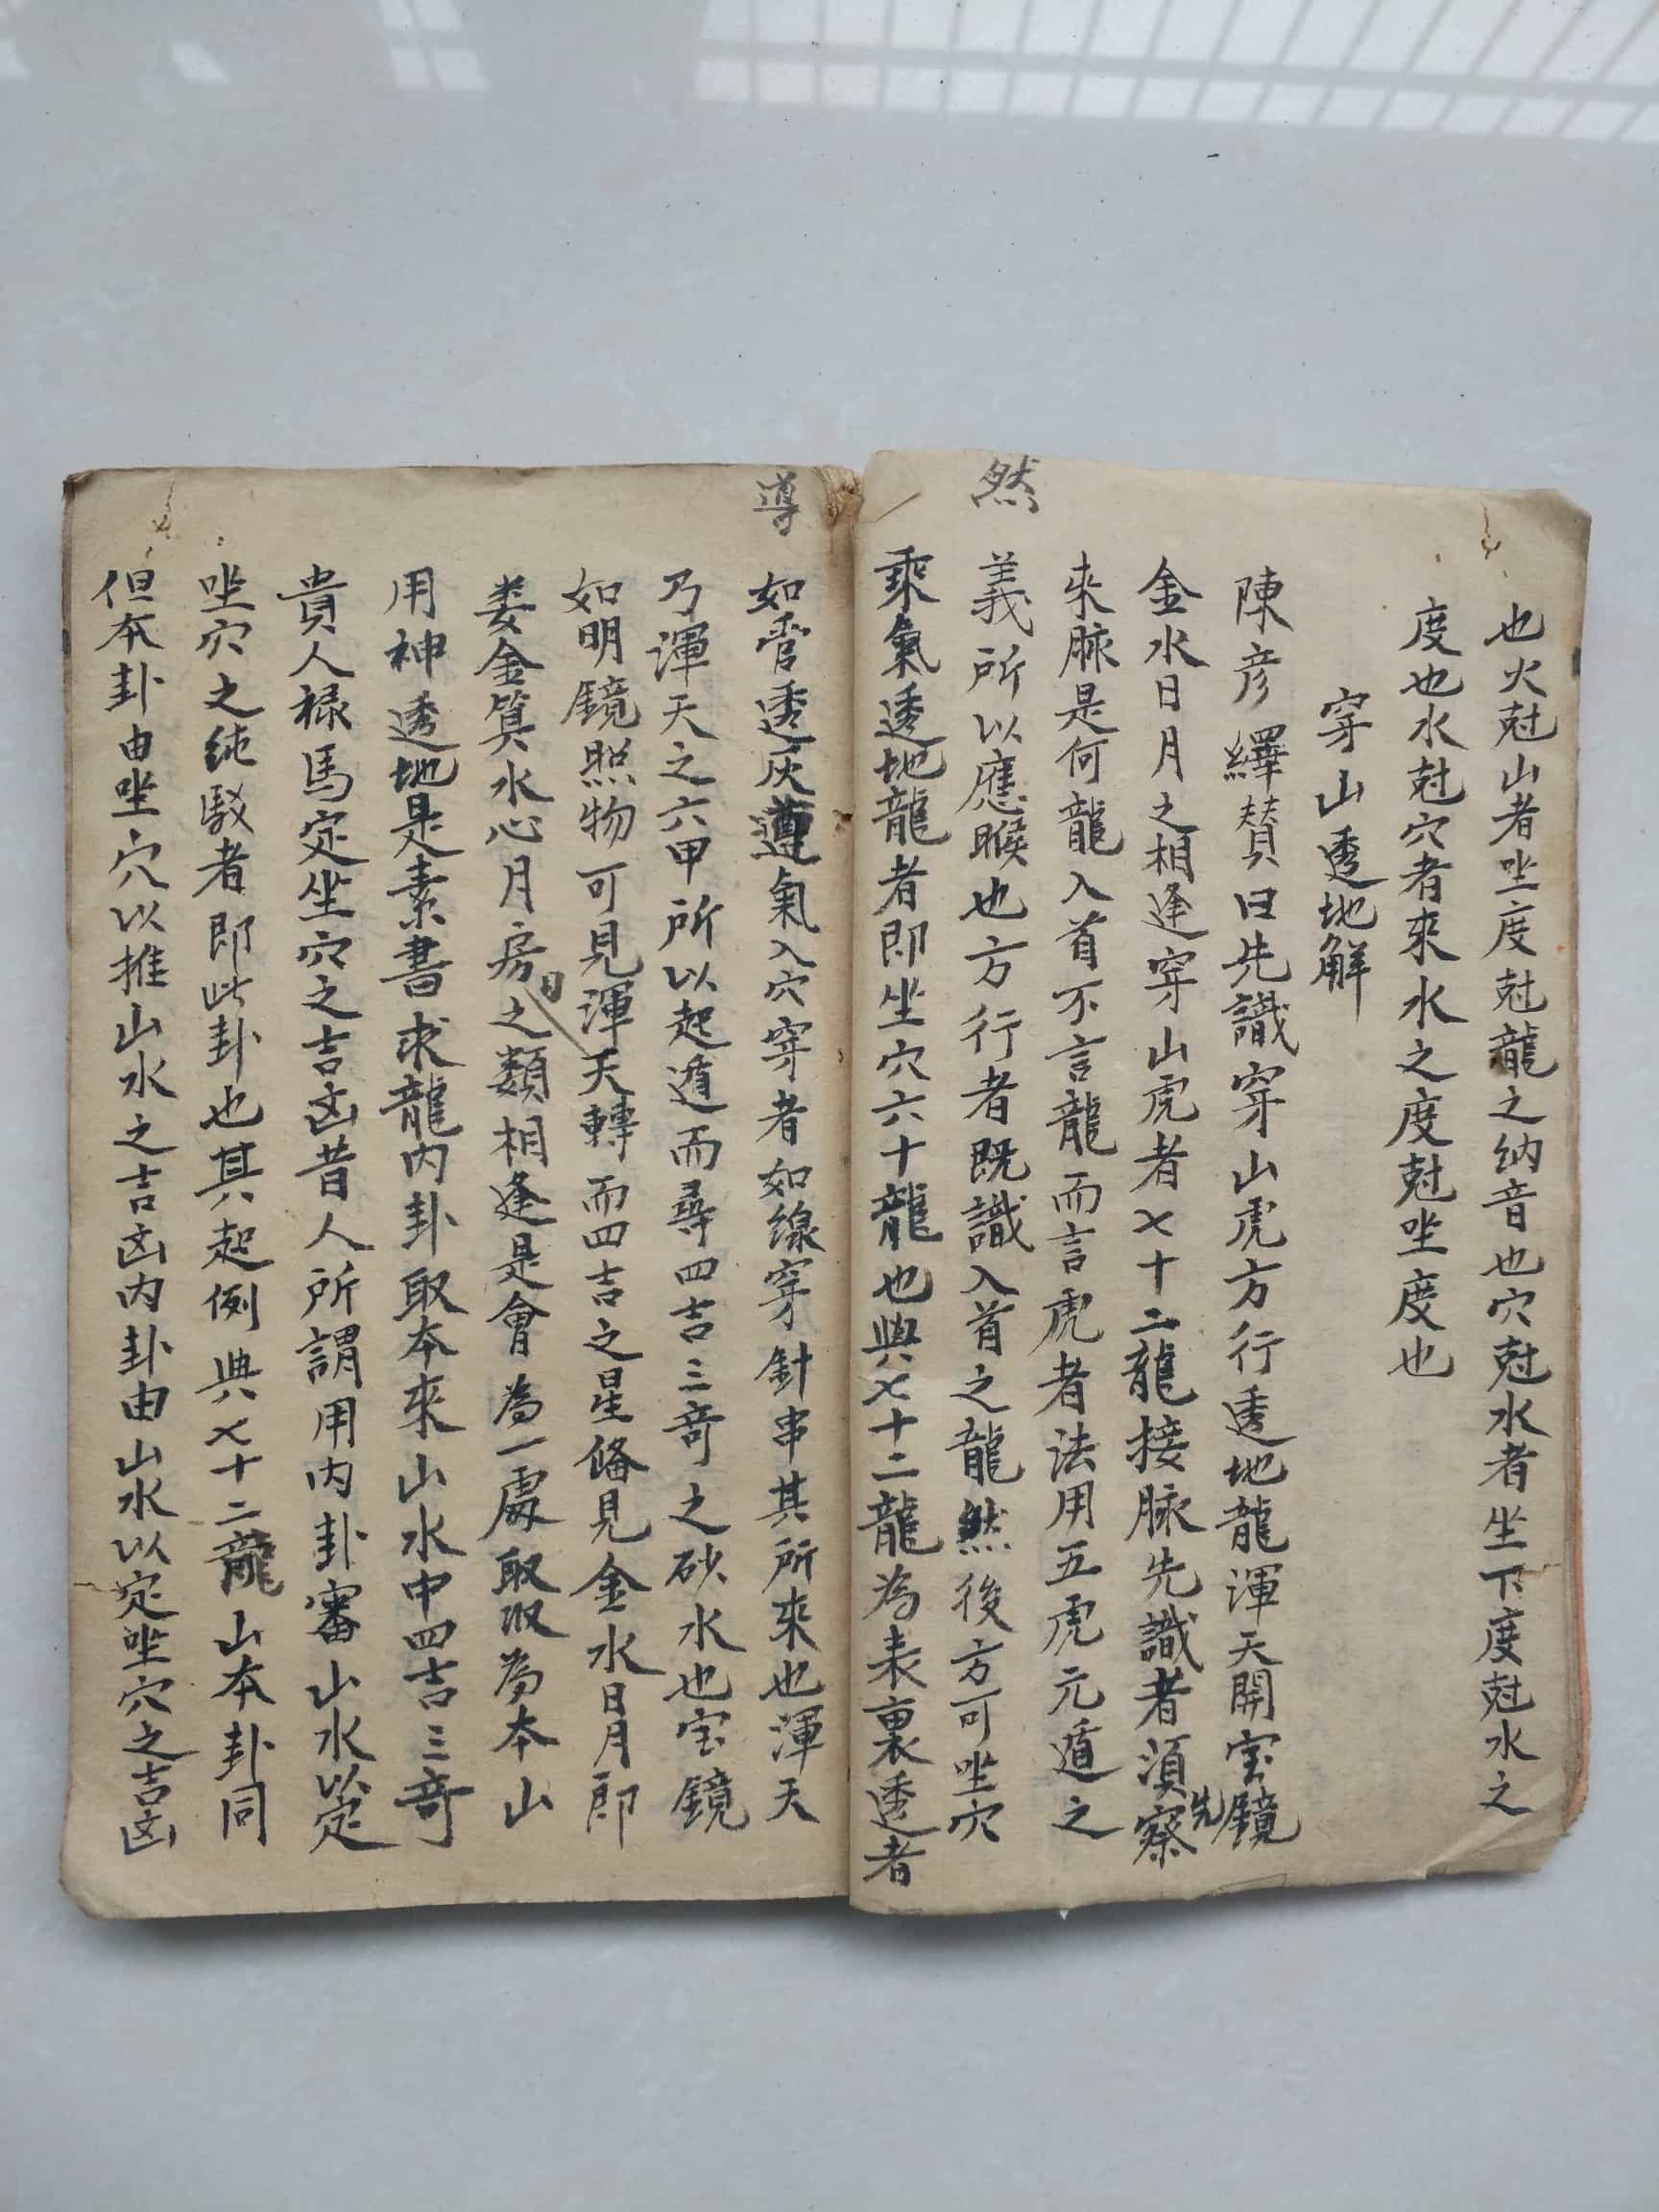 也火尅山者坐度尅龍之納音也穴尅水者坐下度尅水之
度也水尅穴者來水之度尅坐度也
穿山透地解
陳彦繹賛曰先識穿山虎方行透地龍渾天開宝鏡
金水日月之相逢穿山虎者七十二龍接脉先識者須察
先
來脉是何龍入首不言龍而言虎者法用五虎元遁之
然
義所以應睺也方行者既識入首之龍然後方可坐穴
乘氣透地龍者即坐穴六十龍也與七十二龍為表裏透者
導
如管透灰遵氣入穴穿者如線穿針串其所來也渾天
乃渾天之六甲所以起遁而尋四吉三竒之砂水也宝鏡
如明鏡照物可見渾天轉而四吉之星俻見金水日月即
婁金箕水心月房之類相逢是會為一處取取為本山
日
用神透地是素書求龍内卦取本來山水中四吉三竒
貴人禄馬定坐穴之吉凶昔人所謂用内卦審山水以定
坐穴之純駁者即此卦也其起例與七十二龍山本卦同
但本卦由坐穴以推山水之吉凶内卦由山水以定坐穴之吉凶